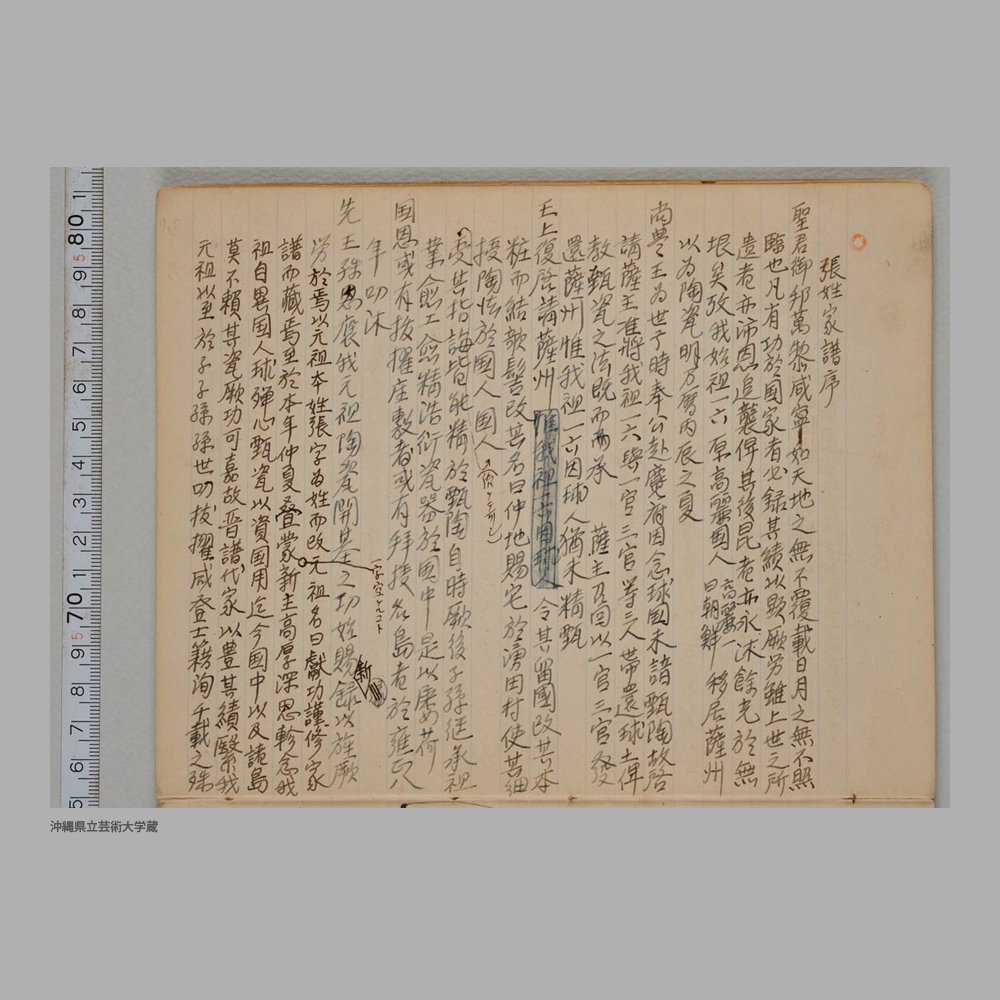 張姓家譜序
聖君御邦萬黎咸寧如天地之無不覆載日月之無不照
臨也凡有功於國家者必録其績以顕厥労雖上世之所
遺者亦沛恩追襲俾其後昆者亦永沐餘光於無
垠矣攷我始祖一六原高麗國人 高麗一曰朝鮮 移居薩州
以為陶瓷明万暦丙辰之夏
尚豊王為世子時奉公赴麑府因念球國未諳甄陶故啓
請薩主准將我祖一六與一官三官等三人帯還球土俾
教甄瓷之法既而承 薩主召回以一官三官發
還薩州惟我祖一六因球人猶未精甄
王上復啓請薩州惟我祖一六因球人令其留國改其本
粧而結欹髻改其名曰仲地賜宅於湧田村使其細
授陶法於國人國人
受其指誨皆能精於甄陶自時厥後子孫継承祖
業愈工愈精浩衍瓷器於國中是以廉める荷
国恩或有抜擢座敷者或有拝授名島者於雍正八
年叨沐
先王殊恩褒我元祖陶瓷開基之功始賜 録以旌厥 新
労於焉以元祖本姓張字為姓而改元祖名曰獻功謹修家 一字空ケルコト
譜而藏焉至於本年仲夏叠蒙新主高厚深恩軫念我
祖自異国人球殫心甄瓷以資国用迄今國中以及諸島
莫不頼其瓷厥功可嘉故晋譜代家以豊其績繄我
元祖以至於子子孫孫世叨抜擢咸登士籍洵千載之殊
80
70
沖縄県立芸術大学蔵